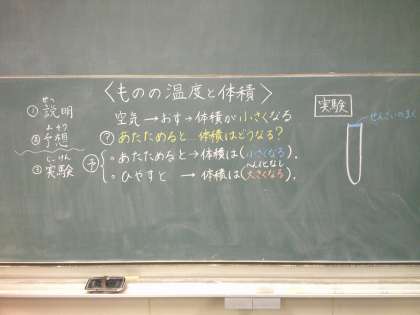 〈ものの温度と体積〉
せつ
①説明
よそう
②予想
じっけん
③実験
空気→おす→体積が小さくなる
?あたためると 体積はどうなる?
予
・あたためると→体積は(小さくなる).
へんかなし
・ひやすと → 体積は(大きくなる).
実験
せんざいのまく